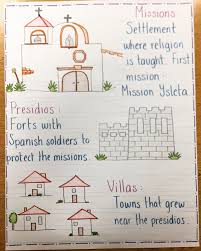 Missions
Settlement
where religion
is taught. First
mission -
Mission Ysleta
Presidios:
Forts with
Spanish soldiers to
protect the missions
Villas:
Towns that grew
near the presidios.